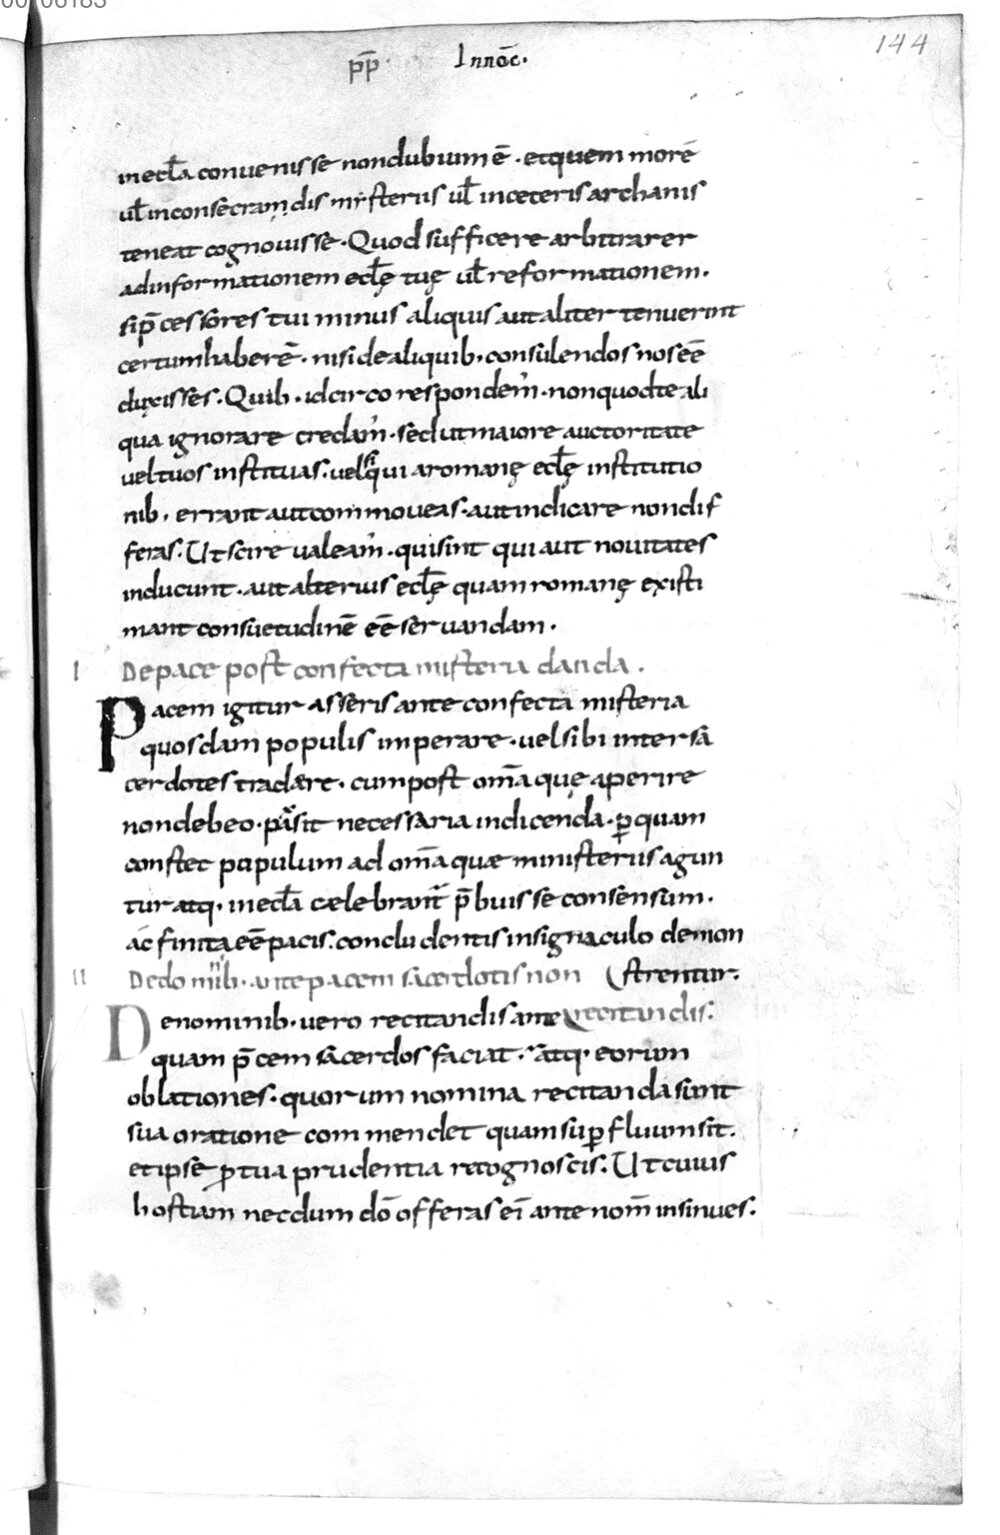 144
pp̄ · Innoc̄.
in ecl̄a convenisse non dubium ē . et quem morē
ul̄ in consecrandis mysteriis ul̄ in ceteris archanis
teneat cognovisse . Quod sufficere arbitrarer
ad informationem ecl̄ę tuę ul̄ reformationem .
si p̄cessores tui minus aliquis aut aliter tenuerint
certum haberē . nisi de aliquib . consulendos nos eē
duxisses . Quib . idcirco respondem̃ . non quod te ali
qua ignorare credam̃ . sed ut maiore auctoritate
vel tuos instituas . vel qui a romanę ecl̄ę institutio
nib . errant aut commoveas . aut indicare non dif
feras . Ut scire valeam̃ . qui sint qui aut novitates
inducunt . aut alterius ecl̄ę quam romanę existi
mant consuetudinē eē servandam .
I De pace post confecta misteria danda .
Pacem igitur asseris ante confecta misteria
quosdam populis imperare . vel sibi inter sa
cerdotes tradere . cum post om̄a quę aperire
non debeo . pax sit necessaria indicenda . p̱ quam
constet populum ad om̄a quæ in misteriis agun
tur atq . in ecl̄a celebrant̃ p̄buisse consensum .
ac finita eē pacis . concludentis in signaculo demon
II De domiib . ante pacem sacerdotis non (strentur .
De nominib . vero recitandis ante (recitandis .
quam p̄cem sacerdos faciat . atq . eorum
oblationes . quorum nomina recitanda sunt
sua oratione commendet quam sup̱fluum sit .
et ipse p̱ tua prudentia recognoscis . Ut cuius
hostiam necdum dō offeras ei ante nom̄ insinues .